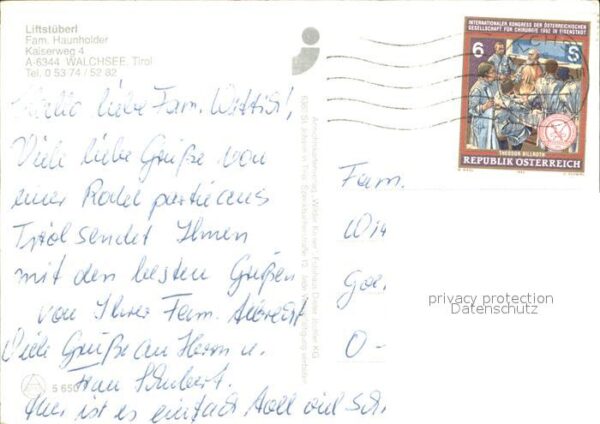 Liftstüberl
Fam. Haunholder
Kaiserweg 4
A-6344 WALCHSEE, Tirol
Tel. 0 53 74 / 52 82
Hallo liebe Fam.
Viele liebe Grüße von
einer Rodelpartie aus
Tirol sendet Ihnen
mit den besten Grüßen
von Ihrer Fam.
Viele Grüße an Herrn u.
Frau Schubert.
Hier ist es einfach toll viel Sch.
INTERNATIONALER KONGRESS DER ÖSTERREICHISCHEN
GESELLSCHAFT FÜR CHIRURGIE 1992 IN EISENSTADT
6 S
THEODOR BILLROTH
REPUBLIK ÖSTERREICH
Fam.
Wit
Goe
O-
privacy protection
Datenschutz